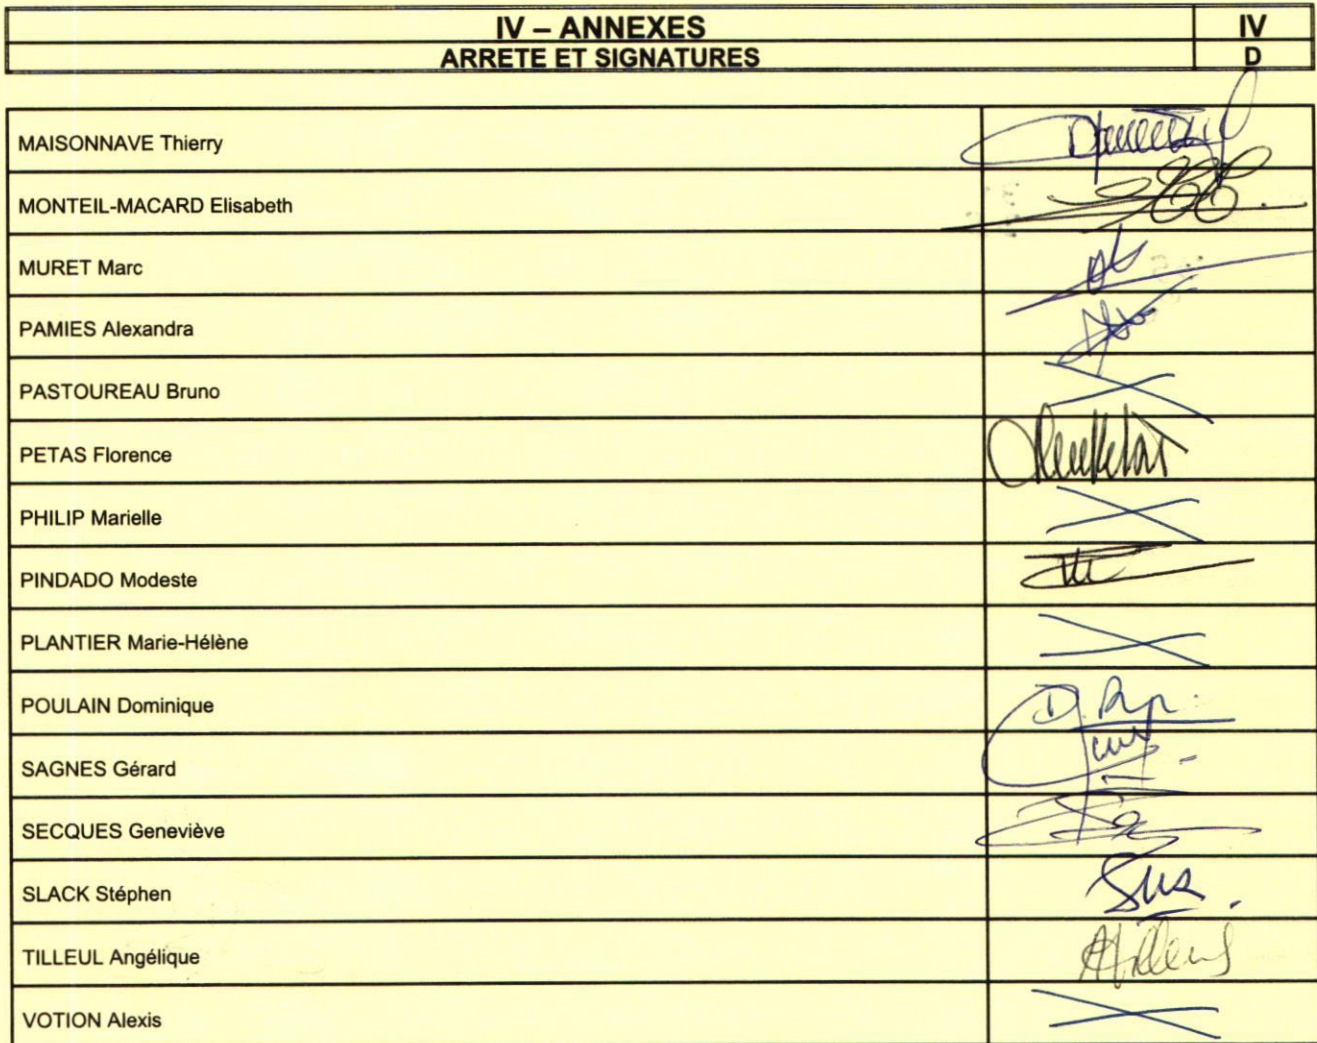 IV – ANNEXES IV
ARRETE ET SIGNATURES D
MAISONNAVE Thierry
MONTEIL-MACARD Elisabeth
MURET Marc
PAMIES Alexandra
PASTOUREAU Bruno
PETAS Florence
PHILIP Marielle
PINDADO Modeste
PLANTIER Marie-Hélène
POULAIN Dominique
SAGNES Gérard
SECQUES Geneviève
SLACK Stéphen
TILLEUL Angélique
VOTION Alexis